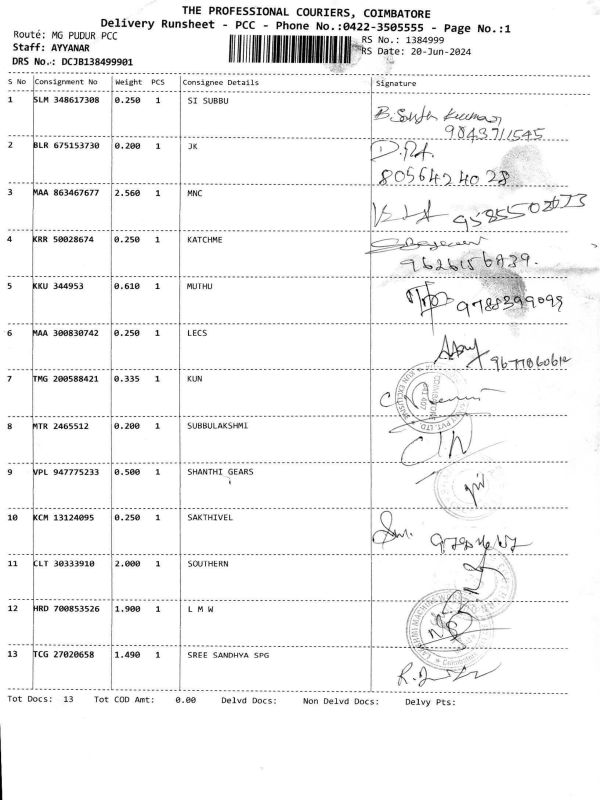 THE PROFESSIONAL COURIERS, COIMBATORE
Delivery Runsheet - PCC - Phone No.:0422-3505555 - Page No.:1
Route: MG PUDUR PCC
RS No.: 1384999
Staff: AYYANAR
RS Date: 20-Jun-2024
DRS No.: DCJB138499901
S No Consignment No Weight PCS Consignee Details Signature
1 SLM 348617308 0.250 1 SI SUBBU
9843711545
2 BLR 675153730 0.200 1 JK
8056424028
3 MAA 863467677 2.560 1 MNC
4 KRR 50028674 0.250 1 KATCHME
5 KKU 344953 0.610 1 MUTHU
9788399099
6 MAA 300830742 0.250 1 LECS
7 TMG 200588421 0.335 1 KUN
8 MTR 2465512 0.200 1 SUBBULAKSHMI
9 VPL 947775233 0.500 1 SHANTHI GEARS
10 KCM 13124095 0.250 1 SAKTHIVEL
11 CLT 30333910 2.000 1 SOUTHERN
12 HRD 700853526 1.900 1 L M W
13 TCG 27020658 1.490 1 SREE SANDHYA SPG
Tot Docs: 13 Tot COD Amt: 0.00 Delvd Docs: Non Delvd Docs: Delvy Pts: